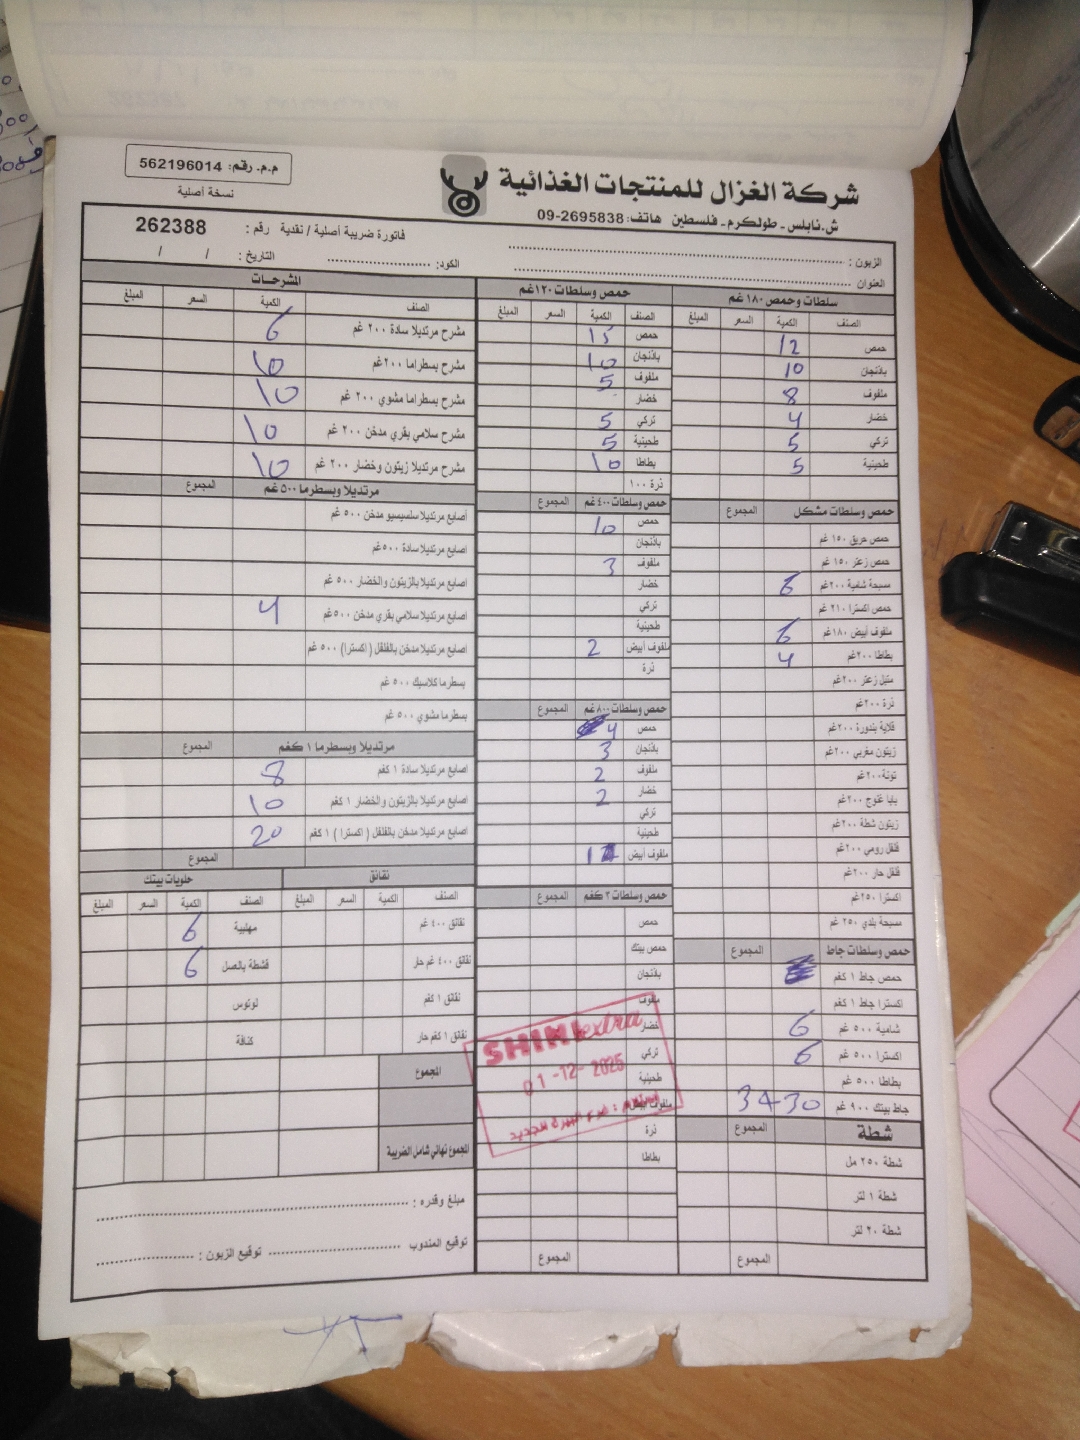 شركة الغزال للمنتجات الغذائية
م.م. رقم: 562196014
نسخة أصلية
ش.نابلس - طولكرم - فلسطين هاتف: 2695838-09
الزبون :
العنوان
فاتورة ضريبة أصلية / نقدية رقم : 262388
الكود: التاريخ : / /
سلطات وحمص ١٨٠ غم
الصنف الكمية السعر المبلغ
حمص 12
باذنجان 10
ملفوف 8
خضار 4
تركي 5
طحينية 5
حمص وسلطات مشكل المجموع
حمص حريق ١٥٠ غم
حمص زعتر ١٥٠ غم
مسبحة شامية ٢٠٠غم 6
حمص اكسترا ٢١٠ غم
ملفوف أبيض ١٨٠غم 6
بطاطا ٢٠٠غم 4
متبل زعتر ٢٠٠غم
ذرة ٢٠٠غم
قلاية بندورة ٢٠٠غم
زيتون مغربي ٢٠٠غم
تونة ٢٠٠غم
بابا غنوج ٢٠٠غم
زيتون شطة ٢٠٠غم
فلفل رومي ٢٠٠غم
فلفل حار ٢٠٠غم
اكسترا ٢٥٠غم
مسبحة بلدي ٢٥٠ غم
حمص وسلطات جاط المجموع
حمص جاط ١ كغم
اكسترا جاط ١ كغم
شامية ٥٠٠ غم 6
اكسترا ٥٠٠ غم 6
بطاطا ٥٠٠ غم
جاط بيتك ٩٠٠ غم 30 34
شطة المجموع
شطة ٢٥٠ مل
شطة ١ لتر
شطة ٢٠ لتر
المجموع
حمص وسلطات ١٢٠غم
الصنف الكمية السعر المبلغ
حمص 15
باذنجان 10
ملفوف 5
خضار
تركي 5
طحينية 5
بطاطا 10
ذرة ١٠٠
حمص وسلطات ٤٠٠ غم المجموع
حمص 10
باذنجان
ملفوف 3
خضار
تركي
طحينية
ملفوف أبيض 2
ذرة
حمص وسلطات ٨٠٠ غم المجموع
حمص 4
باذنجان 3
ملفوف 2
خضار 2
تركي
طحينية
ملفوف أبيض
حمص وسلطات ٣ كغم المجموع
حمص
حمص بيتك
باذنجان
ملفوف
خضار
تركي
طحينية
ملفوف أبيض
ذرة
بطاطا
المجموع
SHINI extra
01-12-2025
المشرحات
الصنف الكمية السعر المبلغ
مشرح مرتديلا سادة ٢٠٠ غم 6
مشرح بسطراما ٢٠٠غم 10
مشرح بسطراما مشوي ٢٠٠ غم 10
مشرح سلامي بقري مدخن ٢٠٠ غم 10
مشرح مرتديلا زيتون وخضار ٢٠٠ غم 10
مرتديلا وبسطرما ٥٠٠ غم المجموع
اصابع مرتديلا سلسيسيو مدخن ٥٠٠ غم
اصابع مرتديلا سادة ٥٠٠غم
اصابع مرتديلا بالزيتون والخضار ٥٠٠ غم
اصابع مرتديلا سلامي بقري مدخن ٥٠٠غم 4
اصابع مرتديلا مدخن بالفلفل ( اكسترا) ٥٠٠ غم
بسطرما كلاسيك ٥٠٠ غم
بسطرما مشوي ٥٠٠ غم
مرتديلا وبسطرما ١ كغم المجموع
اصابع مرتديلا سادة ١ كغم 8
اصابع مرتديلا بالزيتون والخضار ١ كغم 10
اصابع مرتديلا مدخن بالفلفل ( اكسترا ) ١ كغم 20
المجموع
نقانق
الصنف الكمية السعر المبلغ
نقانق ٤٠٠ غم
نقانق ٤٠٠ غم حار
نقانق ١ كغم
نقانق ١ كغم حار
حلويات بيتك
الصنف الكمية السعر المبلغ
مهلبية 6
قشطة بالعسل 6
لوتوس
كنافة
المجموع
المجموع نهائي شامل الضريبة
مبلغ وقدره :
توقيع المندوب توقيع الزبون :